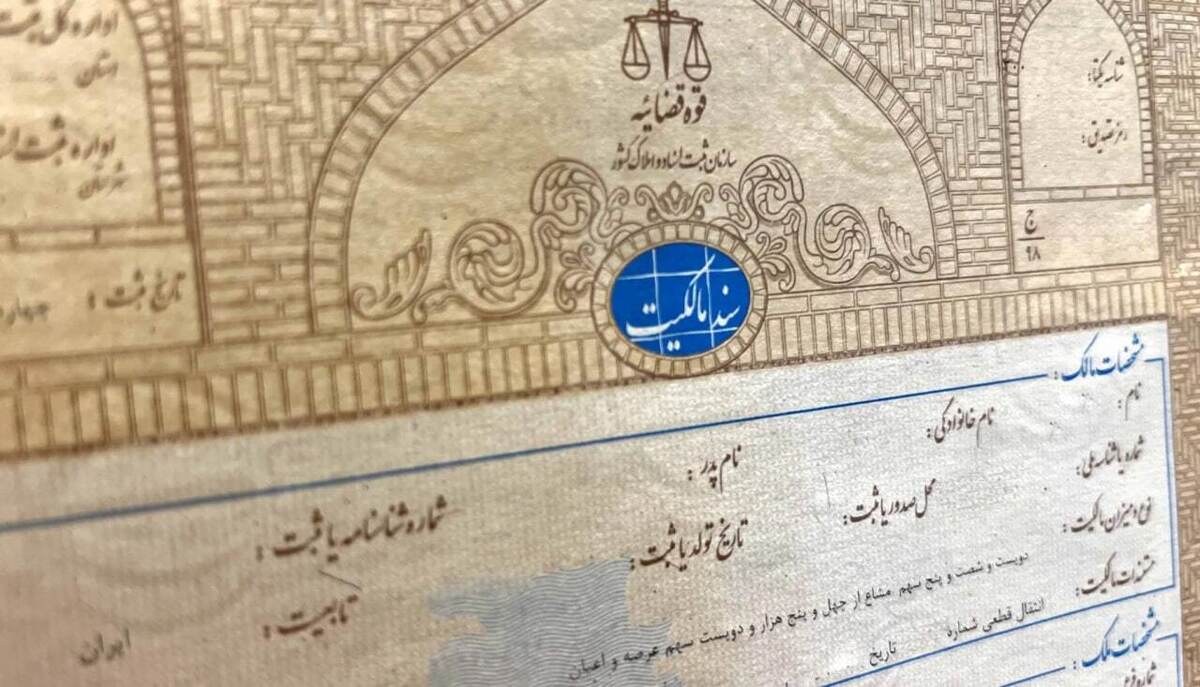 قوه قضائیه
سازمان ثبت اسناد و املاک کشور
سند مالکیت
شناسه یکتا:
رمز تصدیق:
ج
۹۸
اداره کل ثبت
استان
اداره ثبت
شهرستان
تاریخ ثبت :
مشخصات مالک :
نام : نام خانوادگی : نام پدر : شماره شناسنامه یا ثبت :
شماره یا شناسه ملی : محل صدور یا ثبت : تاریخ تولد یا ثبت : تابعیت : ایران
نوع و میزان مالکیت : دویست و شصت و پنج سهم مشاع از چهل و پنج هزار و دویست سهم عرصه و اعیان
مستندات مالکیت : انتقال قطعی شماره تاریخ
مشخصات ملک :